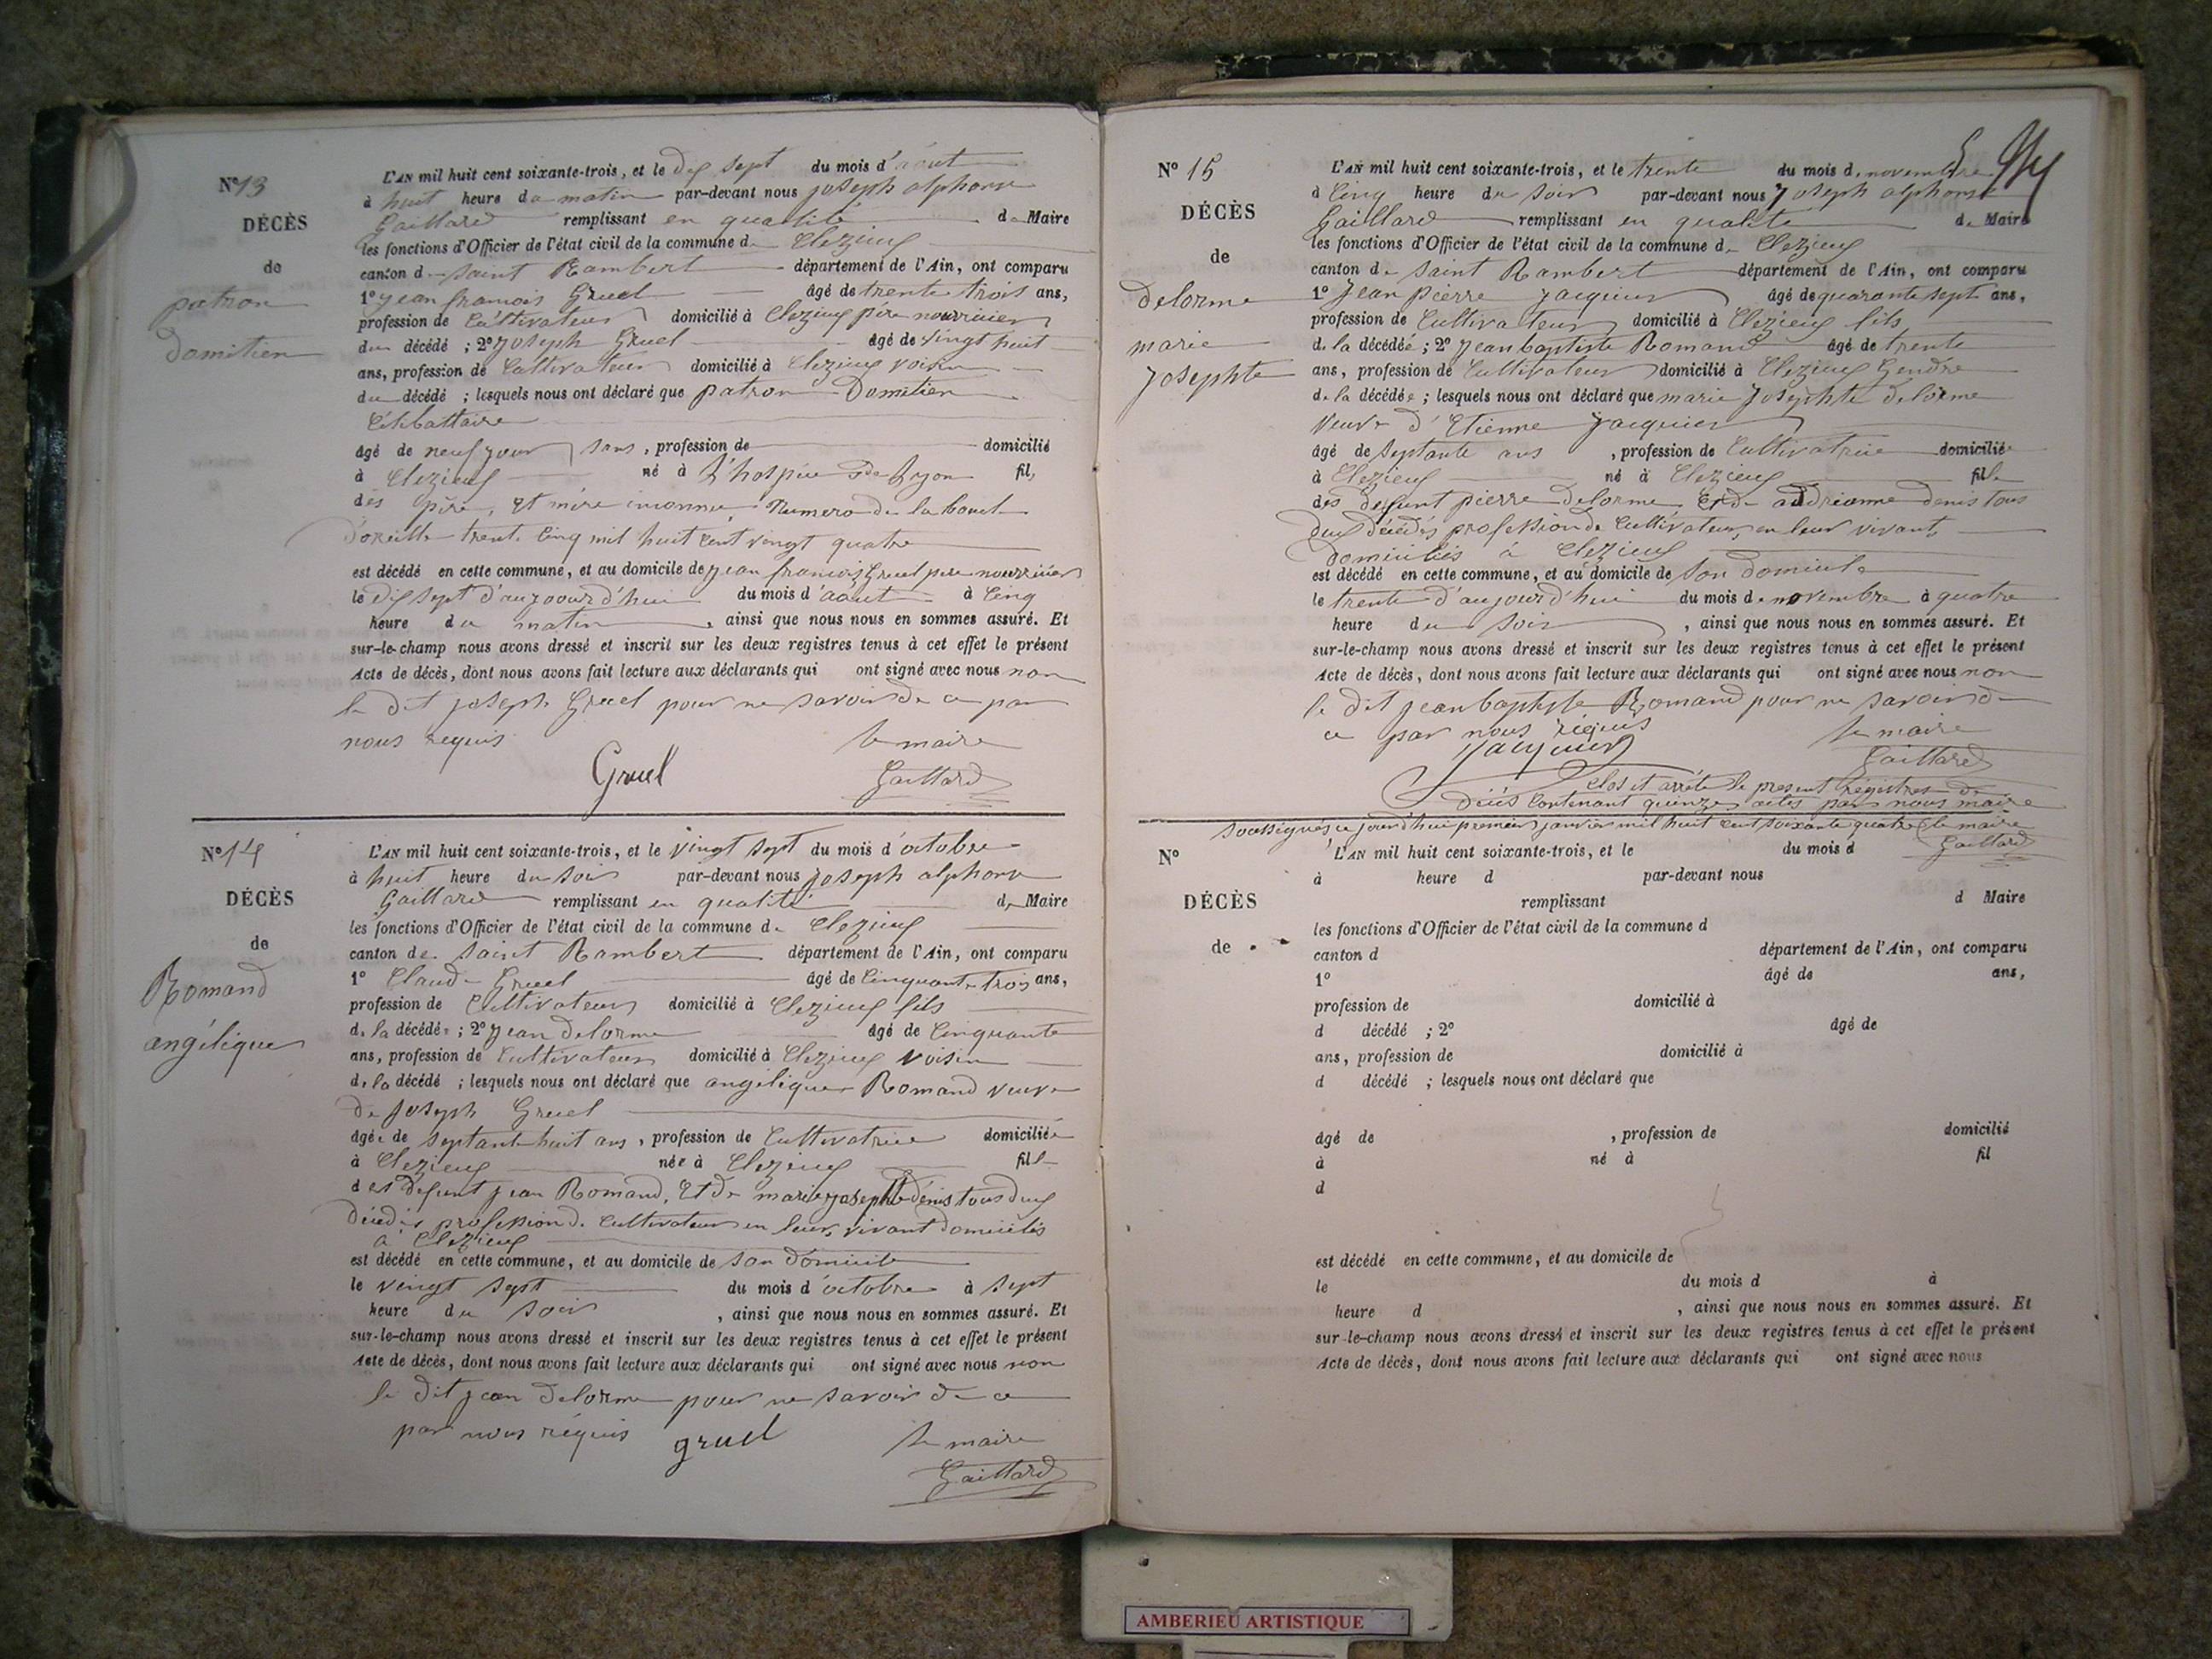 N° 13
DÉCÈS
de
patron
Domitien
L'AN mil huit cent soixante-trois, et le dix sept du mois d'août
à huit heure du matin par-devant nous joseph alphonse
Gaillard remplissant en qualité de Maire
les fonctions d'Officier de l'état civil de la commune de Clezieux
canton de saint Rambert département de l'Ain, ont comparu
1° jean francois Gruel âgé de trente trois ans,
profession de Cultivateur domicilié à Clezieux père nourricier
du décédé ; 2° joseph Gruel âgé de vingt huit
ans, profession de Cultivateur domicilié à Clezieux voisin
du décédé ; lesquels nous ont déclaré que patron Domitien
Célibattaire
âgé de neuf jour sans, profession de domicilié
à Clezieux né à L'hospice de Lyon fil,
des père, et mère inconnu, Numero de la boucle
d'oreille trente cinq mil huit cent vingt quatre
est décédé en cette commune, et au domicile de jean francois Gruel pere nourricier
le dix sept d'aujoourd'hui du mois d'aout à cinq
heure du matin, ainsi que nous nous en sommes assuré. Et
sur-le-champ nous avons dressé et inscrit sur les deux registres tenus à cet effet le présent
Acte de décès, dont nous avons fait lecture aux déclarants qui ont signé avec nous non
le dit joseph Gruel pour ne savoir de ce par
nous requis le maire
Gruel Gaillard
N° 14
DÉCÈS
de
Romand
angélique
L'AN mil huit cent soixante-trois, et le vingt sept du mois d'octobre
à huit heure du soir par-devant nous joseph alphonse
Gaillard remplissant en qualité de Maire
les fonctions d'Officier de l'état civil de la commune de Clezieux
canton de saint Rambert département de l'Ain, ont comparu
1° Claude Gruel âgé de Cinquante trois ans,
profession de Cultivateur domicilié à Clezieux fils
de la décédée ; 2° jean delorme âgé de Cinquante
ans, profession de Cultivateur domicilié à Clezieux voisin
de la décédé ; lesquels nous ont déclaré que angélique Romand veuve
de joseph Gruel
âgée de septante huit ans, profession de Cultivatrice domiciliée
à Clezieux née à Clezieux fille
des defunt jean Romand, et de marie josephte denis tous dux
décédés profession de Cultivateur en leur vivant domicilés
à Clezieux
est décédé en cette commune, et au domicile de son domicile
le vingt sept du mois d'octobre à sept
heure du soir, ainsi que nous nous en sommes assuré. Et
sur-le-champ nous avons dressé et inscrit sur les deux registres tenus à cet effet le présent
Acte de décès, dont nous avons fait lecture aux déclarants qui ont signé avec nous non
le dit jean delorme pour ne savoir de ce
par nous réquis gruel le maire
Gaillard
N° 15
DÉCÈS
de
delorme
marie
josephte
L'AN mil huit cent soixante-trois, et le trente du mois de novembre
à Cinq heure du soir par-devant nous joseph alphonse
Gaillard remplissant en qualité de Maire
les fonctions d'Officier de l'état civil de la commune de Clezieux
canton de saint Rambert département de l'Ain, ont comparu
1° jean pierre jacquier âgé de quarante sept ans,
profession de Cultivateur domicilié à Clezieux fils
de la décédéé ; 2° jean baptiste Romand âgé de trente
ans, profession de Cultivateur domicilié à Clezieux Gendre
de la décédée ; lesquels nous ont déclaré que marie josephte delorme
veuve d'Etienne jacquier
âgé de septante ans, profession de Cultivatrice domicilié
à Clezieux né à Clezieux fille
des defunt pierre delorme et de addrienne denis tous
dux décédés profession de Cultivateur, en leur vivant
domiciliés à Clezieux
est décédé en cette commune, et au domicile de son domicile
le trente d'aujourd'hui du mois de novembre à quatre
heure du soir, ainsi que nous nous en sommes assuré. Et
sur-le-champ nous avons dressé et inscrit sur les deux registres tenus à cet effet le présent
Acte de décès, dont nous avons fait lecture aux déclarants qui ont signé avec nous non
le dit jean baptiste Romand pour ne savoir de
ce par nous réquis le maire
jacquier Gaillard
Clos et arrété le present régistres de
décés Contenant quinze actes par nous maire
soussignés ce jourd'hui premier janvier mil huit cent soixante quatre le maire
Gaillard
N°
DÉCÈS
de
L'AN mil huit cent soixante-trois, et le du mois d
à heure d par-devant nous
remplissant d Maire
les fonctions d'Officier de l'état civil de la commune d
canton d département de l'Ain, ont comparu
1° âgé de ans,
profession de domicilié à
d décédé ; 2° âgé de
ans, profession de domicilié à
d décédé ; lesquels nous ont déclaré que
âgé de , profession de domicilié
à né à fil
d
est décédé en cette commune, et au domicile de
le du mois d à
heure d , ainsi que nous nous en sommes assuré. Et
sur-le-champ nous avons dressé et inscrit sur les deux registres tenus à cet effet le présent
Acte de décès, dont nous avons fait lecture aux déclarants qui ont signé avec nous
AMBERIEU ARTISTIQUE